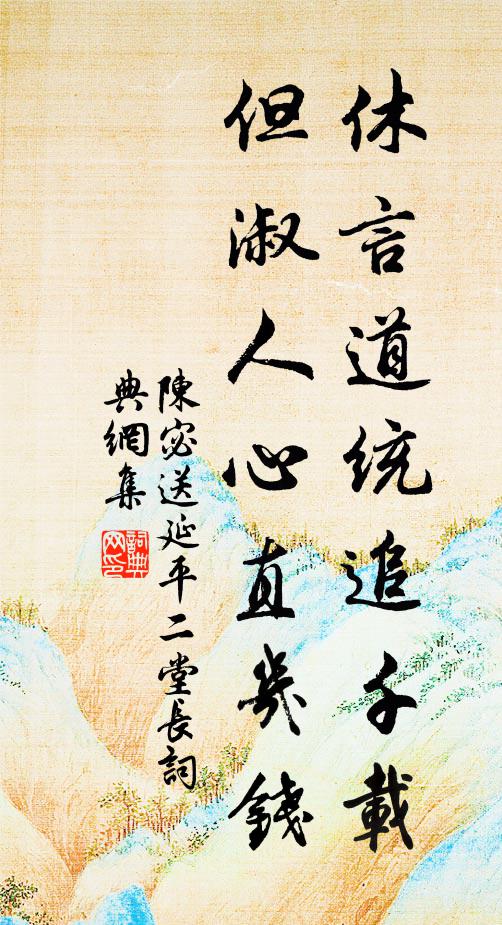 休言道統追千載
但淑人心直幾錢
陳宓送延平二堂長詞
典網集
詞典網印